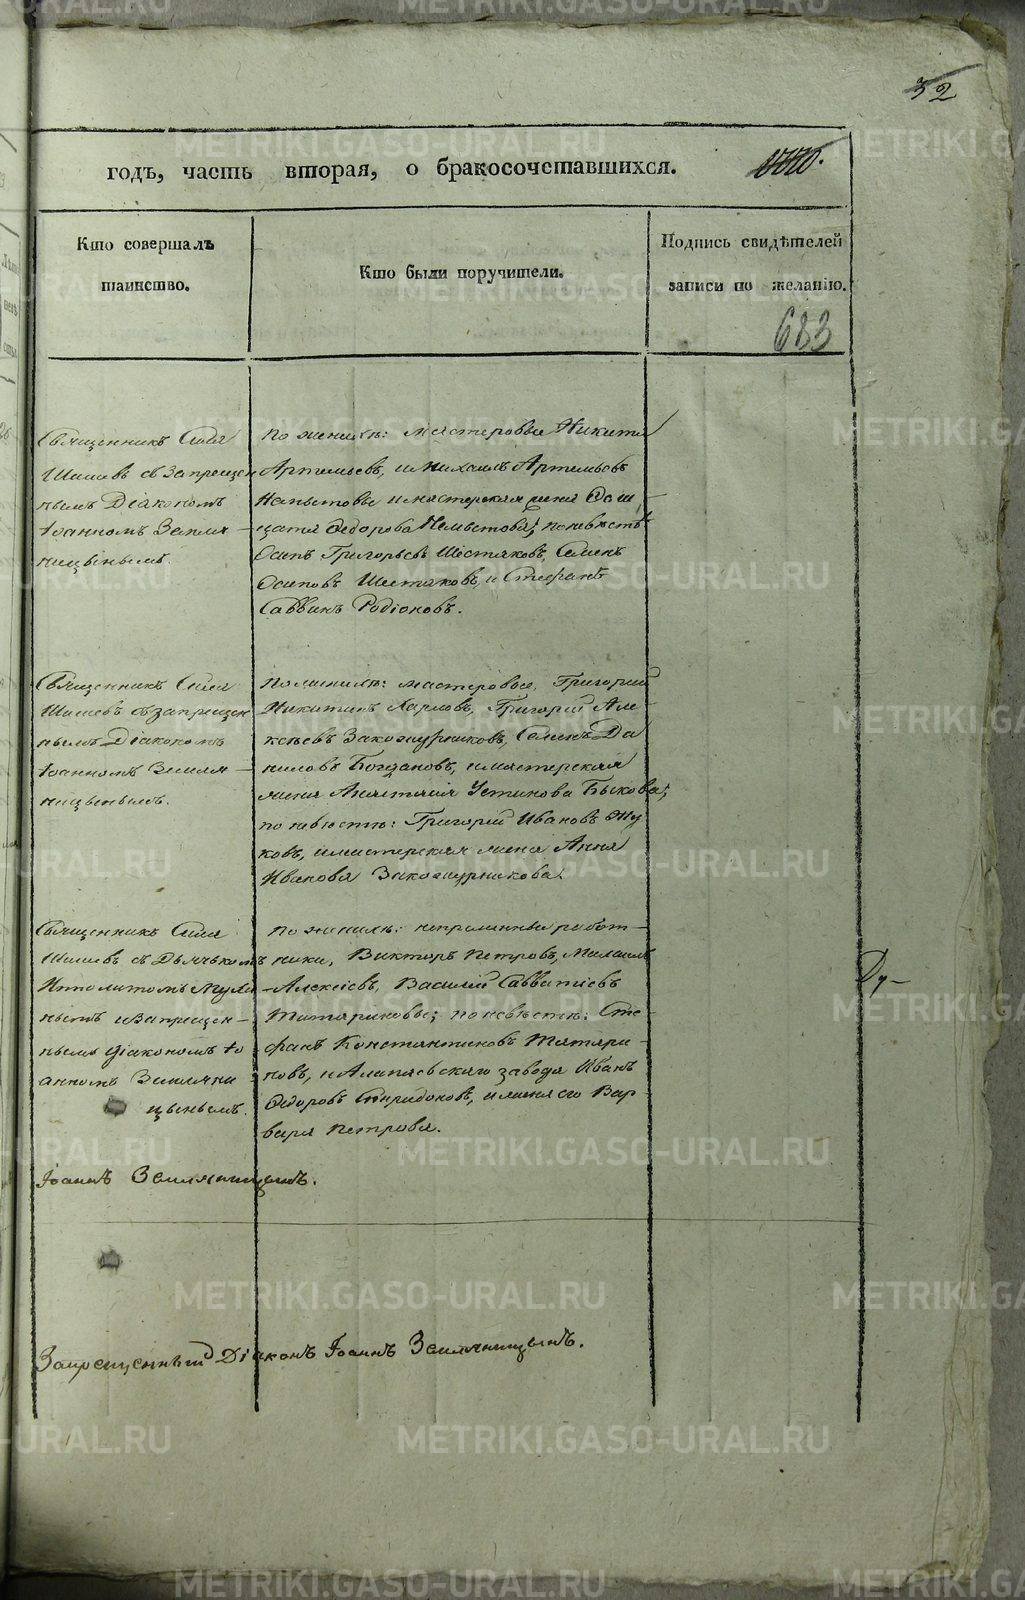 32
годъ, часть вторая, о бракосочетавшихся.
Кто совершалъ таинство.
Кто были поручители.
Подпись свидѣтелей записи по желанію.
683
Священникъ Сила
Шишевъ съ запрещен
нымъ Діакономъ
Іоанномъ Земля-
ницынымъ.
По женихѣ: мастеровые Никита
Артемьевъ, и Михаилъ Артемьевъ
и мастерская жена
Федорова по невѣстѣ
Осипъ Григорьевъ Шестяковъ, Семенъ
Осиповъ Шестаковъ, и Стефанъ
Саввинъ Родіоновъ.
Священникъ Сила
Шишевъ съ запрещен
нымъ Діакономъ
Іоанномъ Земля-
ницынымъ.
По женихѣ: мастеровые, Григорий
Никитинъ Карповъ, Григорій Але-
ксѣевъ Закожурниковъ, Семенъ Да
ниловъ Богдановъ, и мастерская
жена Анастасія Устинова Быкова;
по невѣстѣ: Григорій Ивановъ Жу
ковъ, и мастерская жена Анна
Иванова Закожурникова.
Священникъ Сила
Шишевъ съ Дьячькомъ
Ипполитомъ
нымъ и запрещен-
нымъ Діакономъ Іо
анномъ Землянни
цынымъ.
По женихѣ: непремѣнные работ-
ники, Викторъ Петровъ, Михаилъ
Алексіевъ, Василій Савватіевъ
Татариновы; по невѣстѣ: Сте-
фанъ Константиновъ Татари-
новъ, и Алапаевскаго завода Иванъ
Ѳедоровъ Спиридоновъ, и жена его Вар-
вара Петрова.
Ду-
Іоаннъ Земляницынъ.
Запрещенный Діаконъ Іоаннъ Земляницынъ.
METRIKI.GASO-URAL.RU